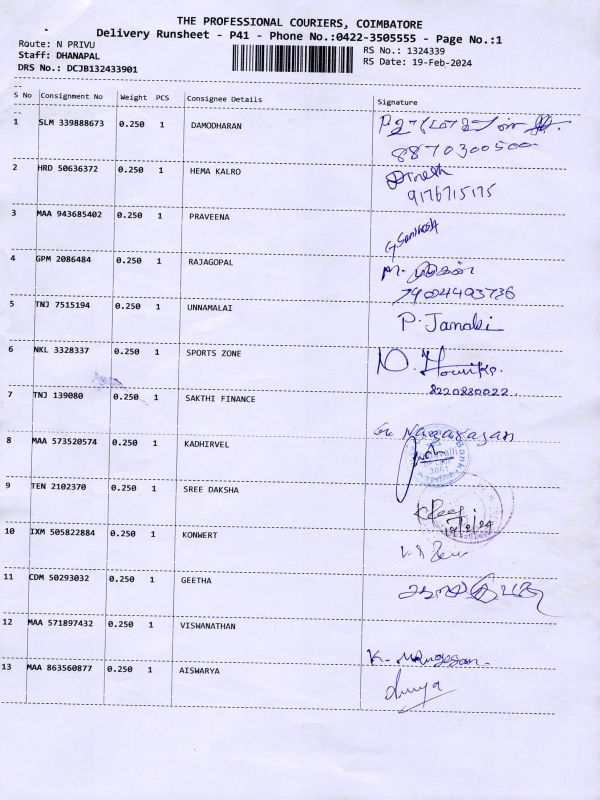 THE PROFESSIONAL COURIERS, COIMBATORE
Delivery Runsheet - P41 - Phone No.:0422-3505555 - Page No.:1
Route: N PRIVU
RS No.: 1324339
Staff: DHANAPAL
RS Date: 19-Feb-2024
DRS No.: DCJB132433901
S No Consignment No Weight PCS Consignee Details Signature
1 SLM 339888673 0.250 1 DAMODHARAN
8870300500
2 HRD 50636372 0.250 1 HEMA KALRO Dinesh
9176715175
3 MAA 943685402 0.250 1 PRAVEENA
4 GPM 2086484 0.250 1 RAJAGOPAL
7904493736
5 TNJ 7515194 0.250 1 UNNAMALAI P. Janaki
6 NKL 3328337 0.250 1 SPORTS ZONE
8220880022
7 TNJ 139080 0.250 1 SAKTHI FINANCE
8 MAA 573520574 0.250 1 KADHIRVEL
9 TEN 2102370 0.250 1 SREE DAKSHA
19/2/24
10 IXM 505822884 0.250 1 KONWERT
11 CDM 50293032 0.250 1 GEETHA
12 MAA 571897432 0.250 1 VISWANATHAN
K. Murugesan
13 MAA 863560877 0.250 1 AISWARYA